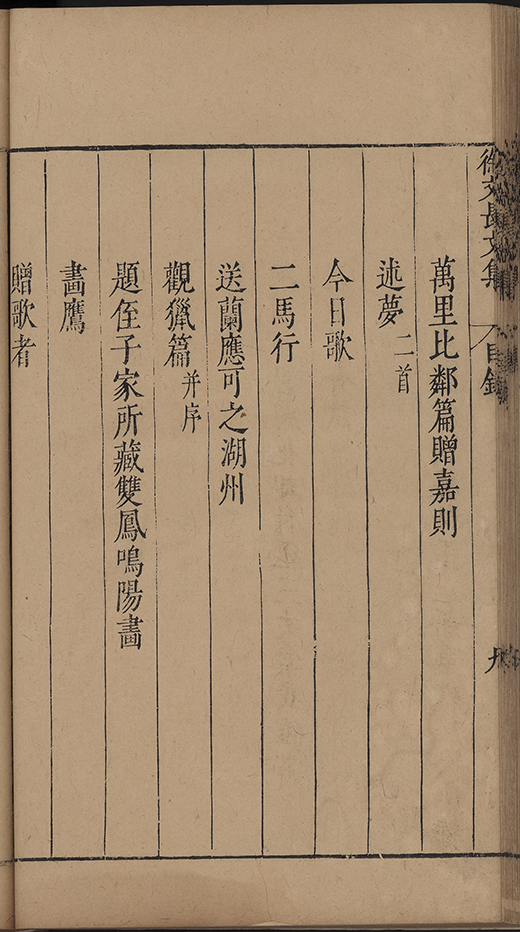 徐文長文集 目錄 九
萬里比鄰篇贈嘉則
述夢二首
今日歌
二馬行
送蘭應可之湖州
觀獵篇并序
題侄子家所藏雙鳳鳴陽畫
畫鷹
贈歌者